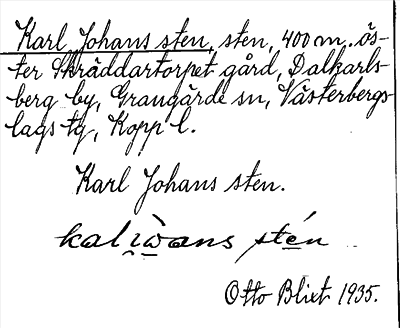 Karl Johans sten, sten, 400 m. ös-
ter Skräddartorpet gård, Dalkarls-
berg by, Grangärde sn, Västerbergs-
lags tg, Kopp l.
Karl Johans sten.
kalịẁans stén
Otto Blixt 1935.